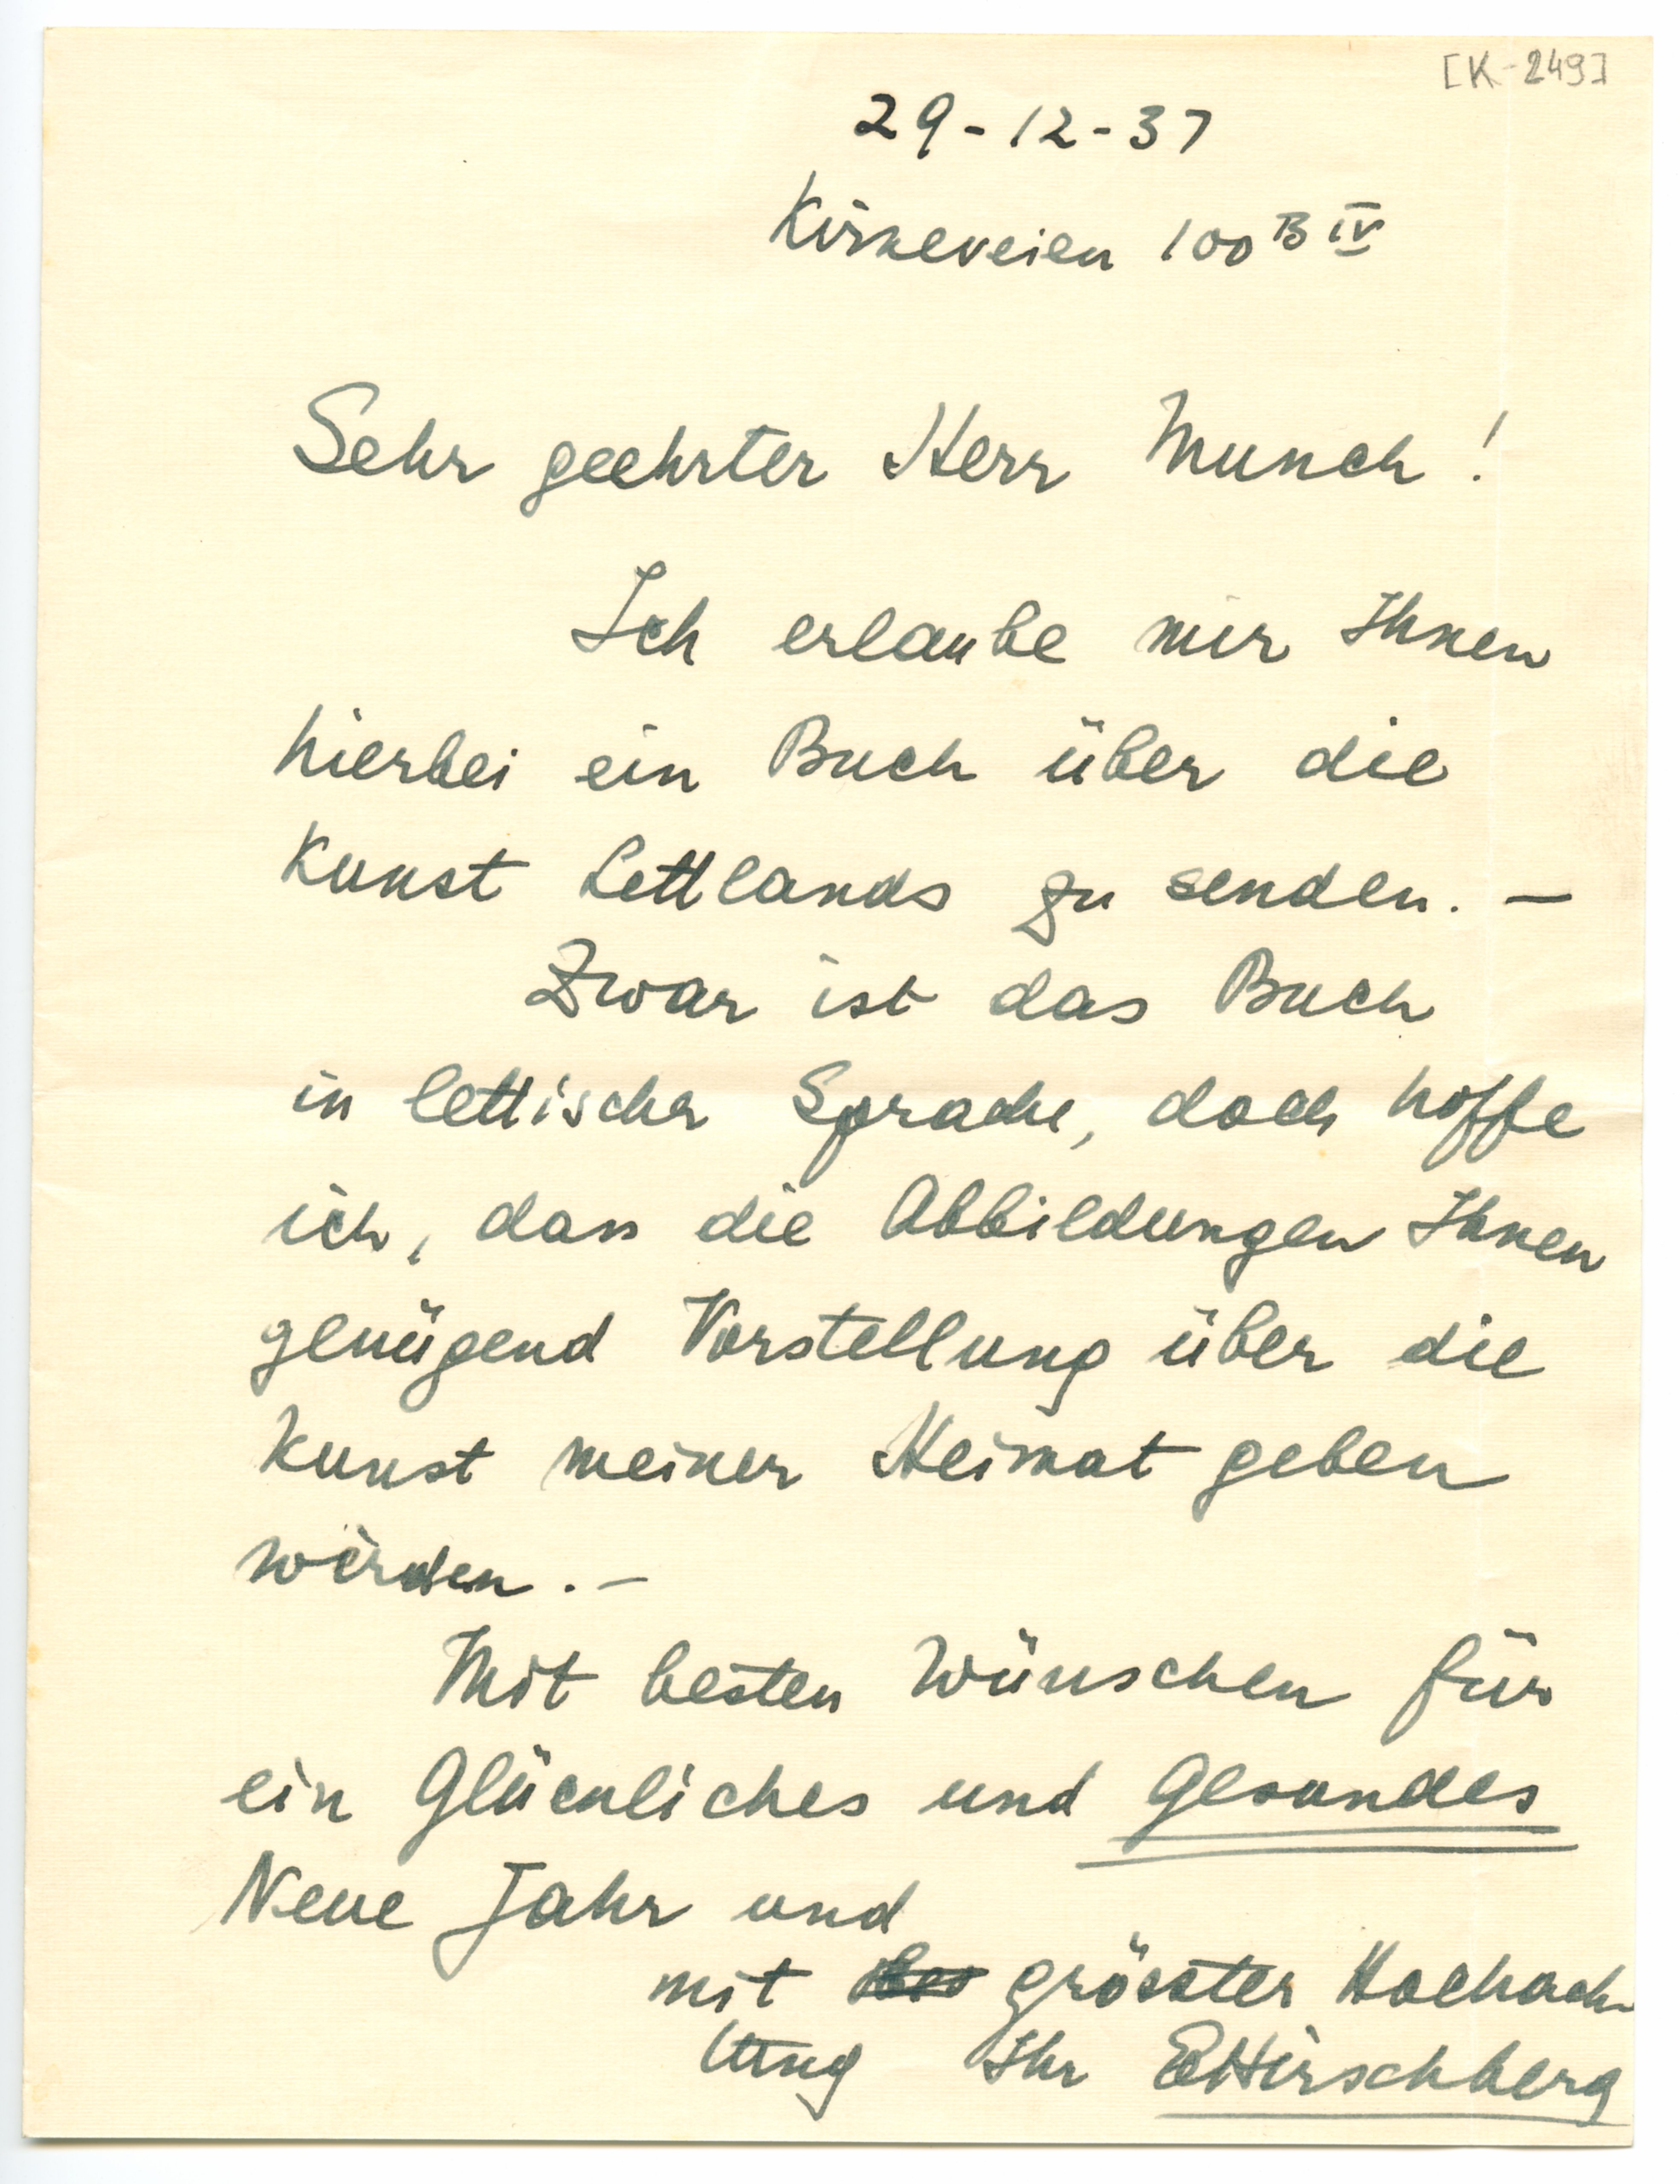 [K-249]
29-12-37
Kirkeveien 100 B IV
Sehr geehrter Herr Munch!
Ich erlaube mir Ihnen
hierbei ein Buch über die
Kunst Lettlands zu senden. —
Zwar ist das Buch
in lettischer Sprache, doch hoffe
ich, dass die Abbildungen Ihnen
genügend Vorstellung über die
Kunst meiner Heimat geben
werden. —
Mit besten Wünschen für
ein Glückliches und Gesundes
Neue Jahr und
mit grösster Hochach-
tung Ihr EHirschberg